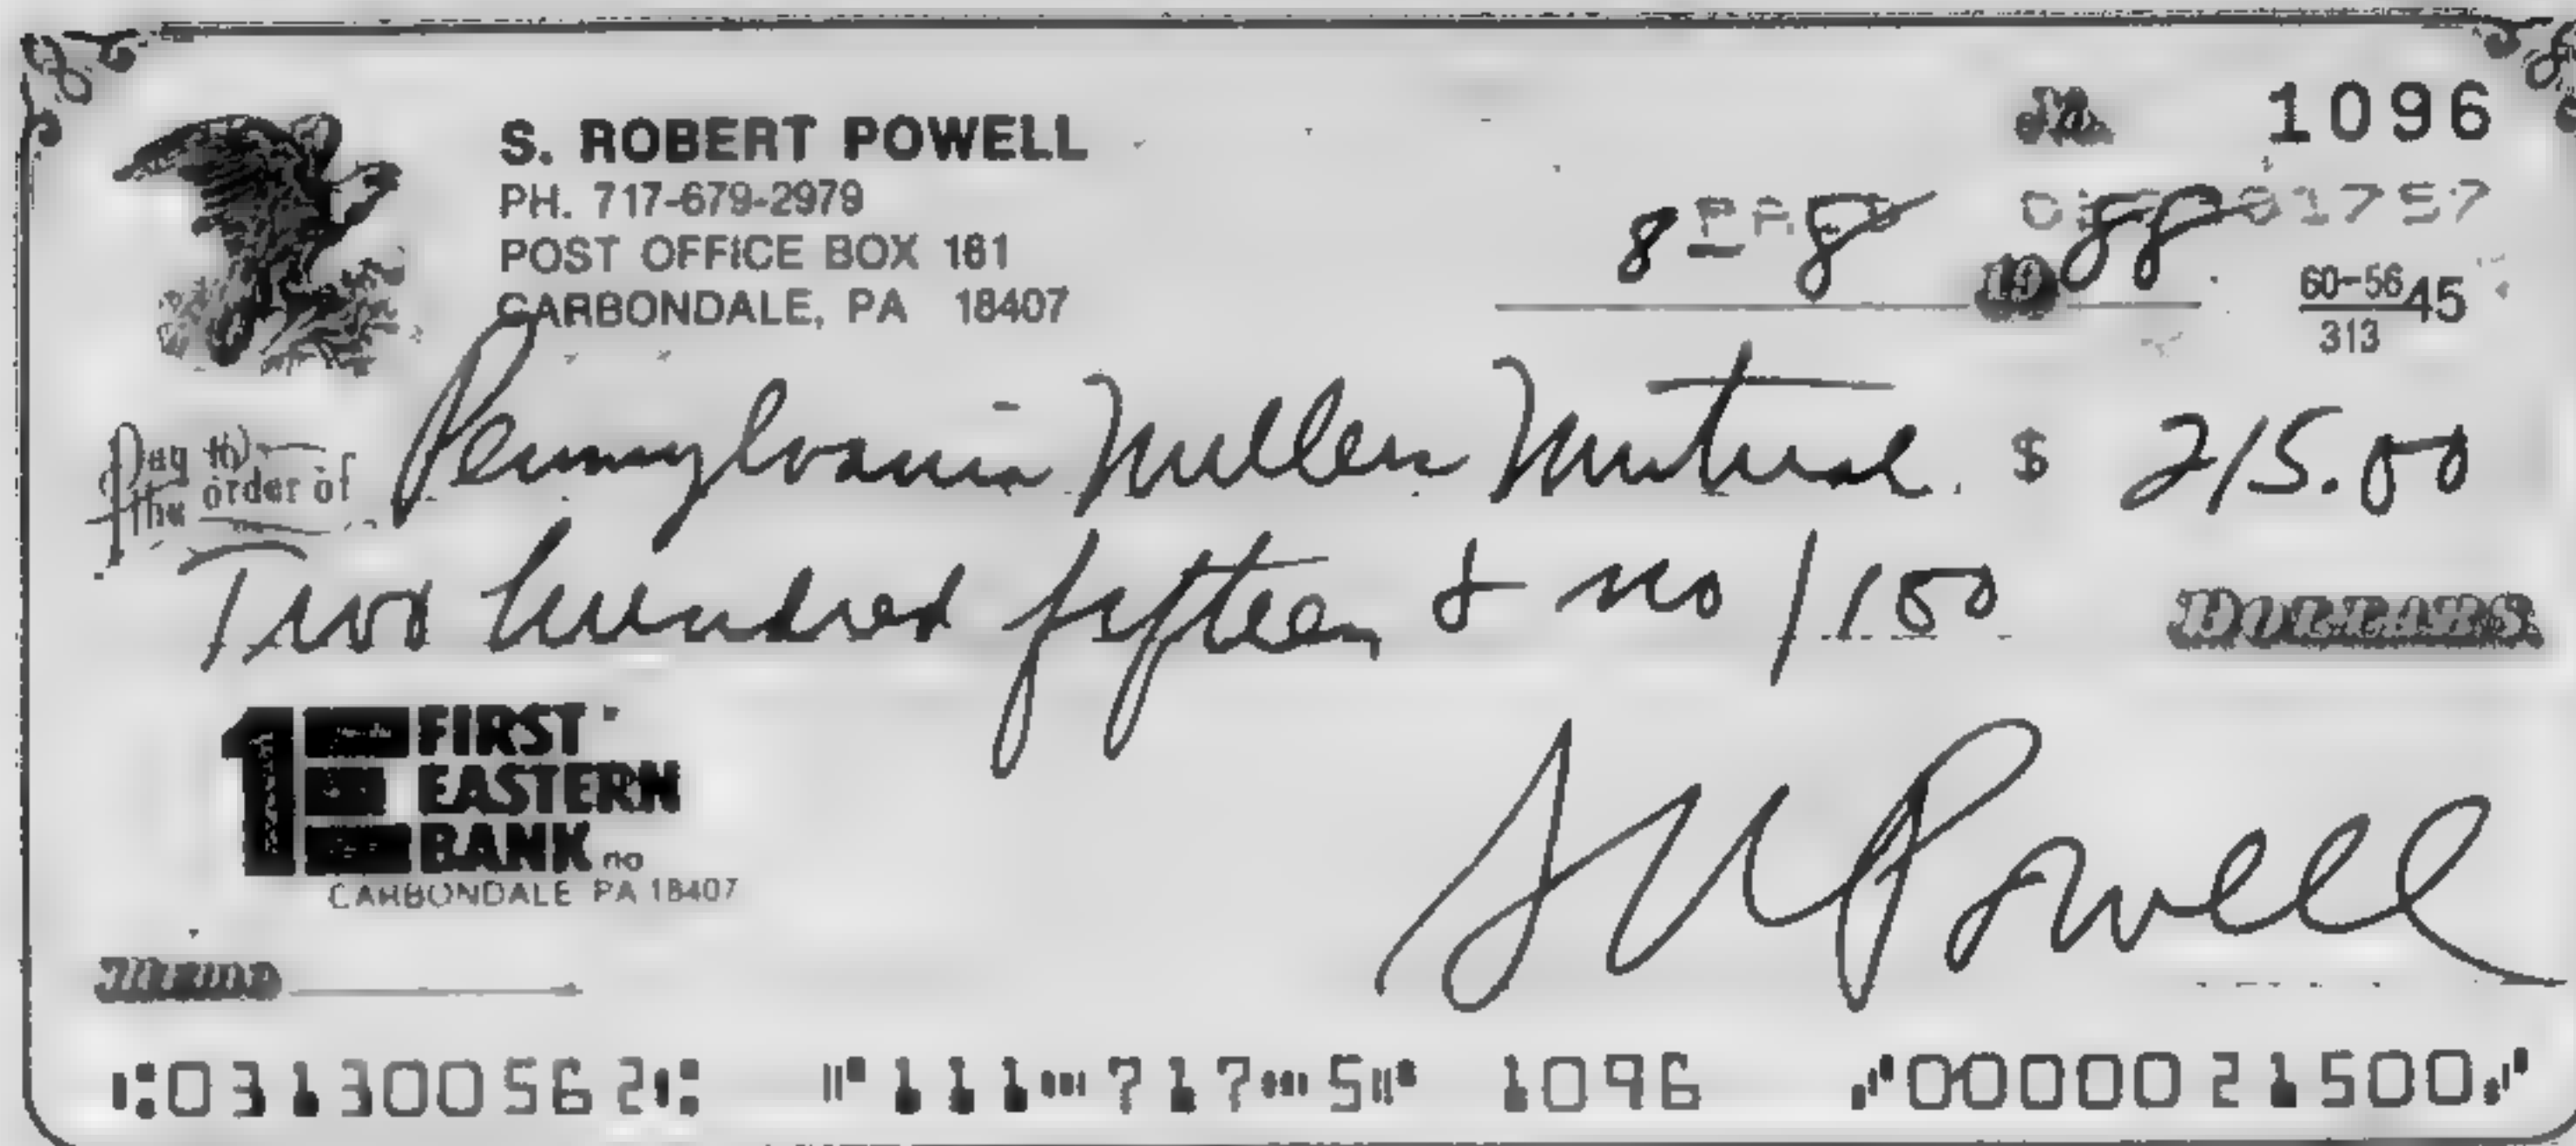 S. ROBERT POWELL
PH. 717-679-2979
POST OFFICE BOX 181
CARBONDALE, PA 18407
1096
8 - 8 1988
60-56 45
313
Pay to the order of Pennsylvania Millers Mutual $ 215.00
Two hundred fifteen & no/100 DOLLARS
1E FIRST EASTERN BANK na
CARBONDALE PA 18407
S R Powell
Memo
⑆031300562⑆ ⑈111⑉717⑉5⑈ 1096 ⑇0000021500⑇